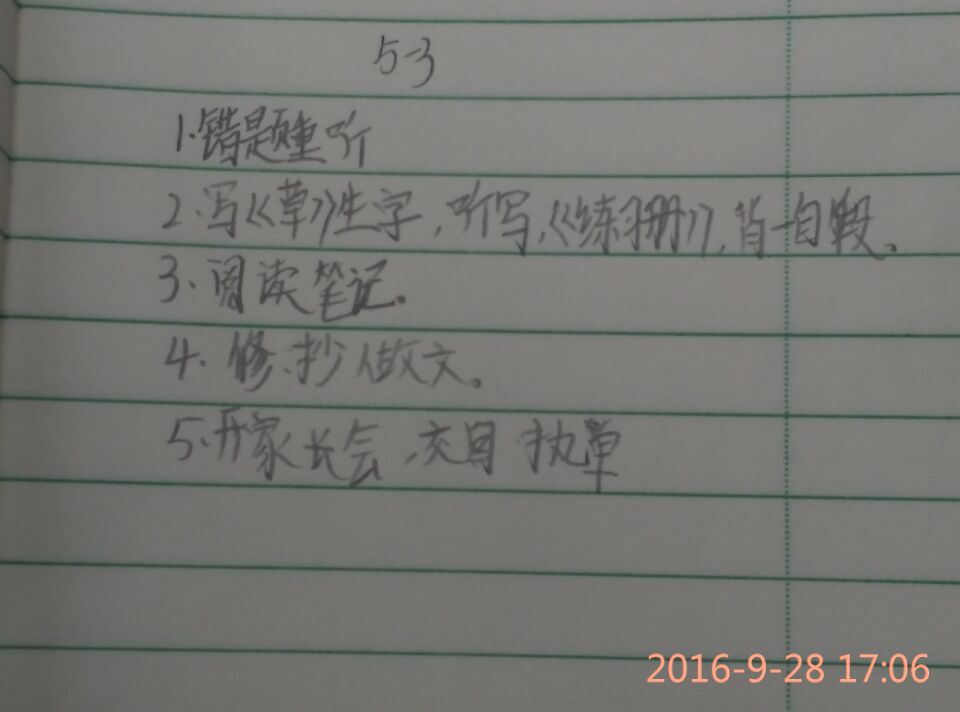 5-3
1.错题重听
2.写《草》生字,听写,《练习册》,背一自段。
3、阅读笔记。
4.修、抄做文。
5.开家长会,交回执单
2016-9-28 17:06